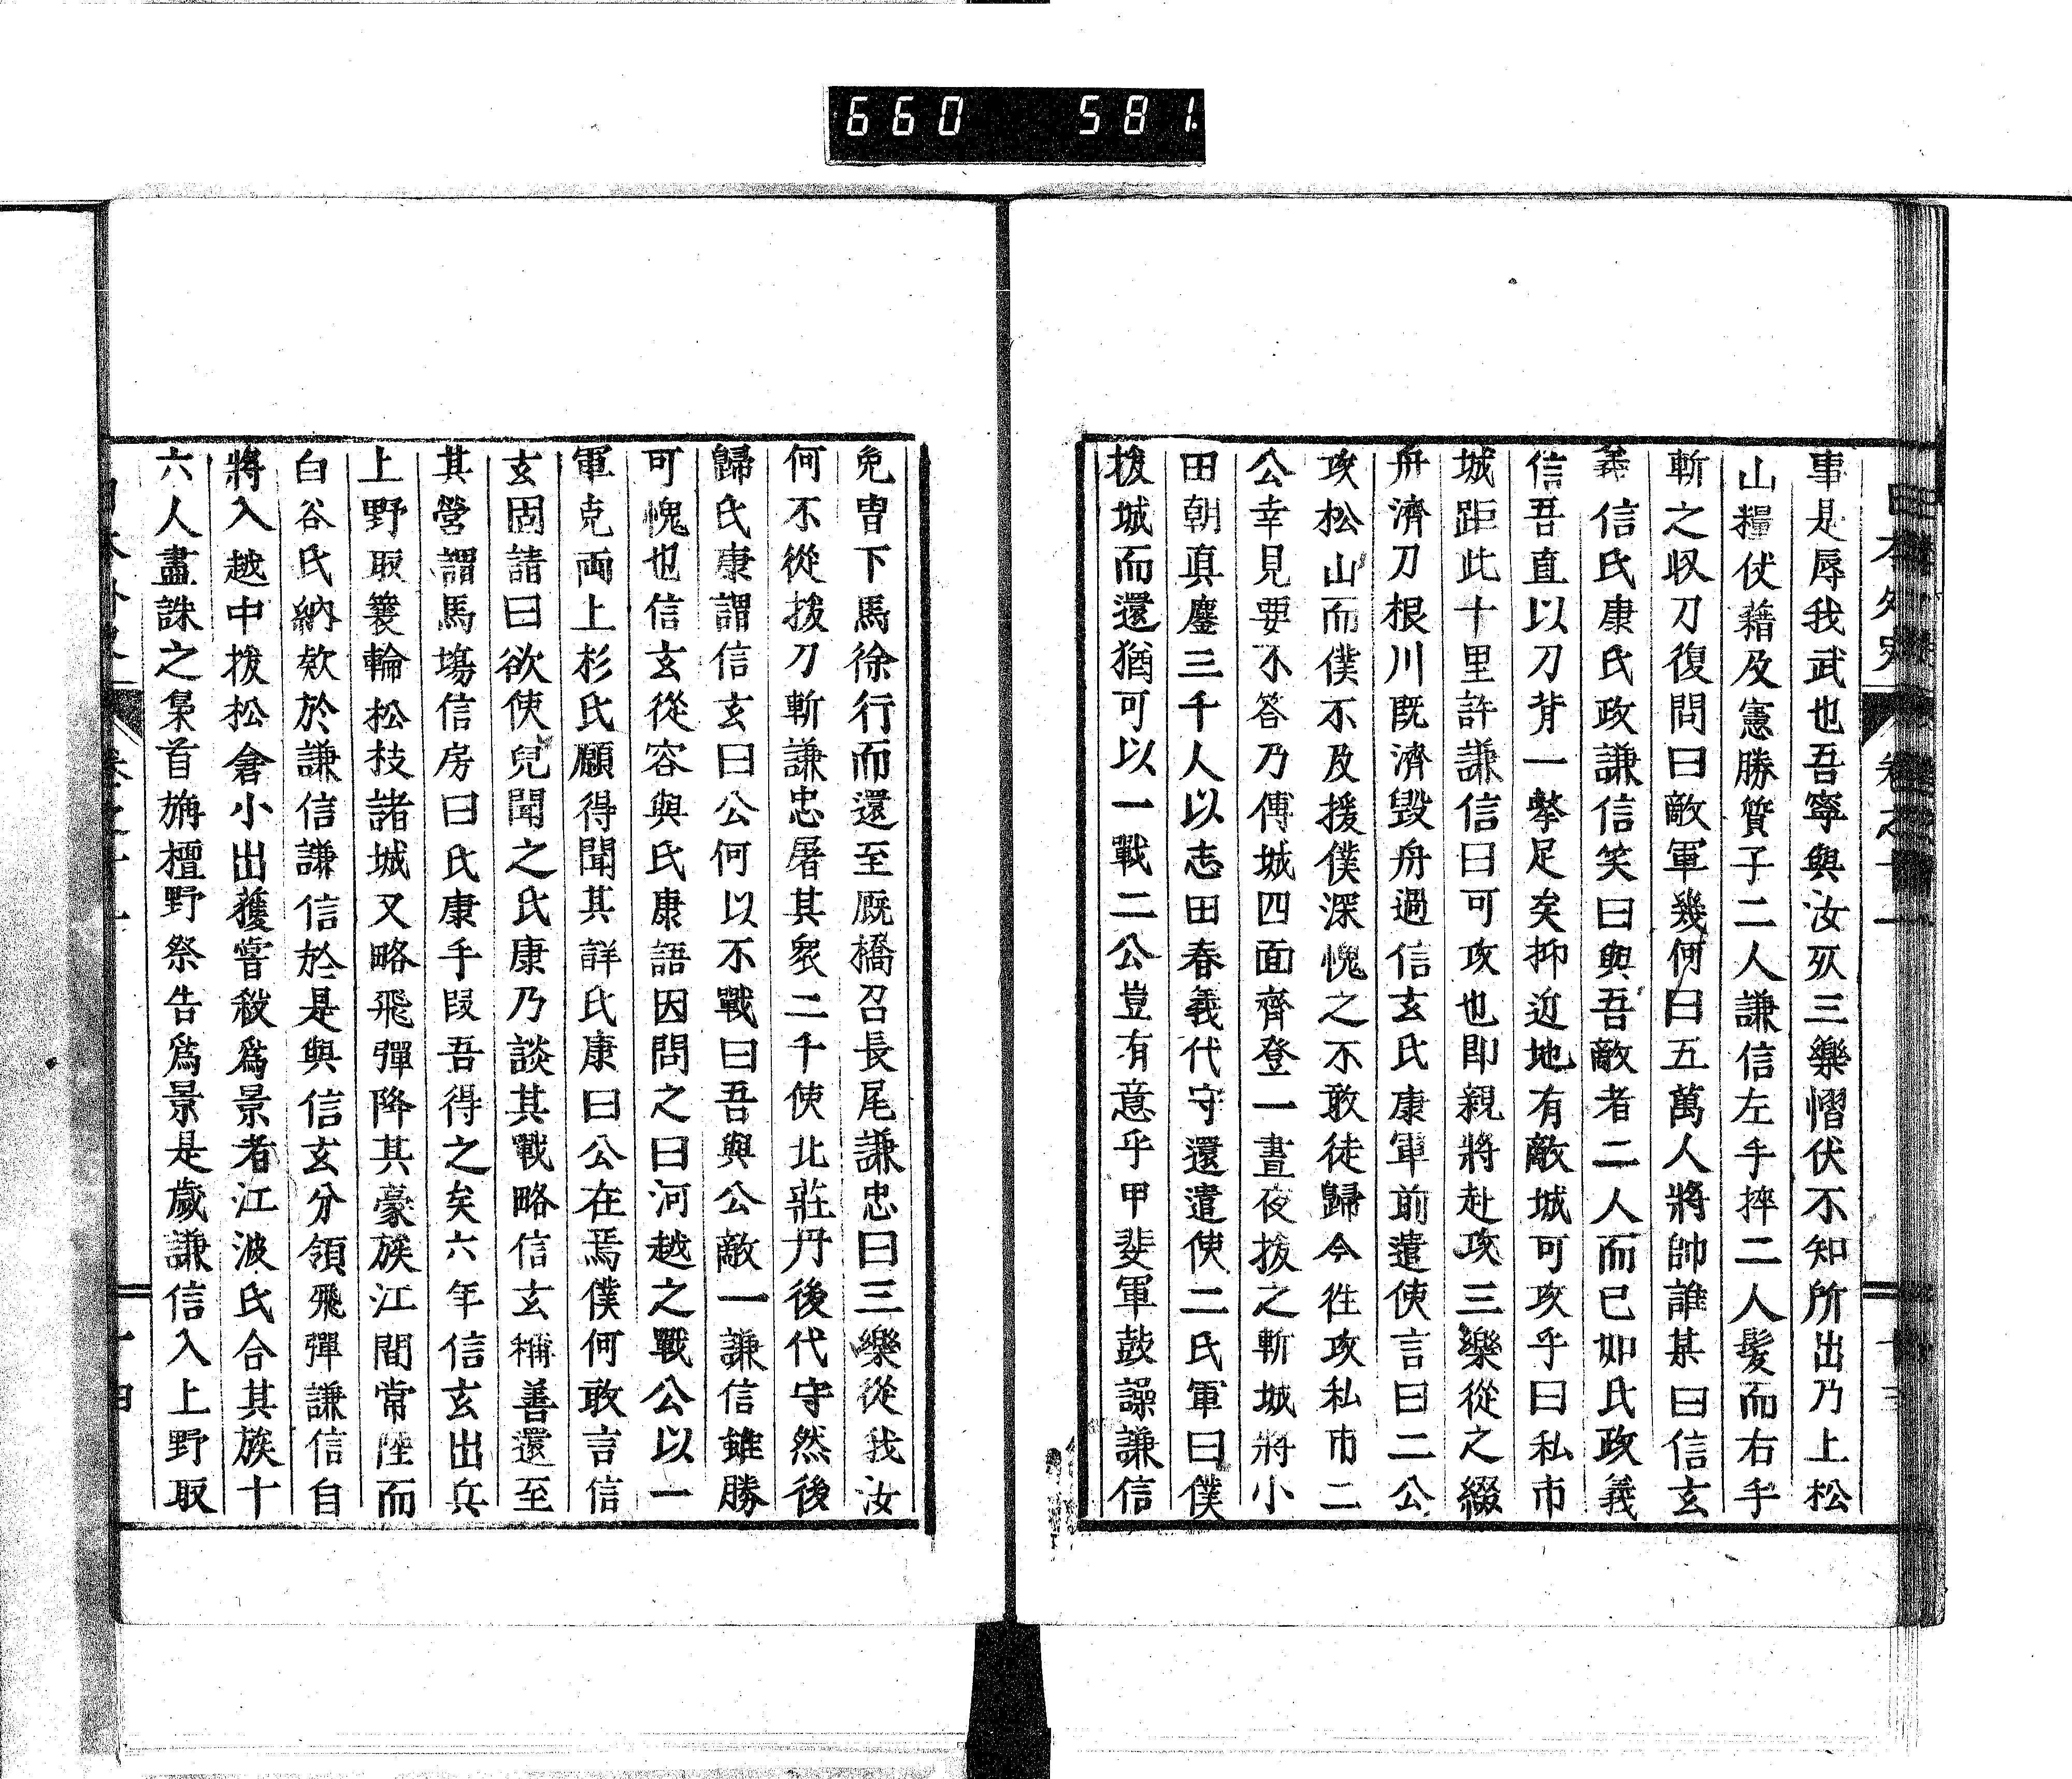 660 581
事是辱我武也吾寧與汝死三樂慴伏不知所出乃上松
山糧仗藉及憲勝質子二人謙信左手捽二人髮而右手
斬之収刀復問曰敵軍幾何曰五萬人將帥誰某曰信玄
義信氏康氏政謙信笑曰與吾敵者二人而已如氏政義
信吾直以刀背一擊足矣抑近地有敵城可攻乎曰私市
城距此十里許謙信曰可攻也即親將赴攻三樂從之綴
舟濟刀根川既濟毀舟過信玄氏康軍前遣使言曰二公
攻松山而僕不及援僕深愧之不敢徒歸今往攻私市二
公幸見要不答乃傅城四面齊登一晝夜拔之斬城將小
田朝真鏖三千人以志田春義代守還遣使二氏軍曰僕
拔城而還猶可以一戰二公豈有意乎甲斐軍鼓譟謙信
免冑下馬徐行而還至厩橋召長尾謙忠曰三樂從我汝
何不從拔刀斬謙忠屠其衆二千使北莊丹後代守然後
歸氏康謂信玄曰公何以不戰曰吾與公敵一謙信雖勝
可愧也信玄從容與氏康語因問之曰河越之戰公以一
軍克兩上杉氏願得聞其詳氏康曰公在焉僕何敢言信
玄固請曰欲使兒聞之氏康乃談其戰略信玄稱善還至
其營謂馬塲信房曰氏康手段吾得之矣六年信玄出兵
上野取簑輪松枝諸城又略飛彈降其豪族江間常陸而
白谷氏納欵於謙信謙信於是與信玄分領飛彈謙信自
將入越中拔松倉小出獲嘗殺爲景者江波氏合其族十
六人盡誅之梟首旃檀野祭告爲景是歲謙信入上野取